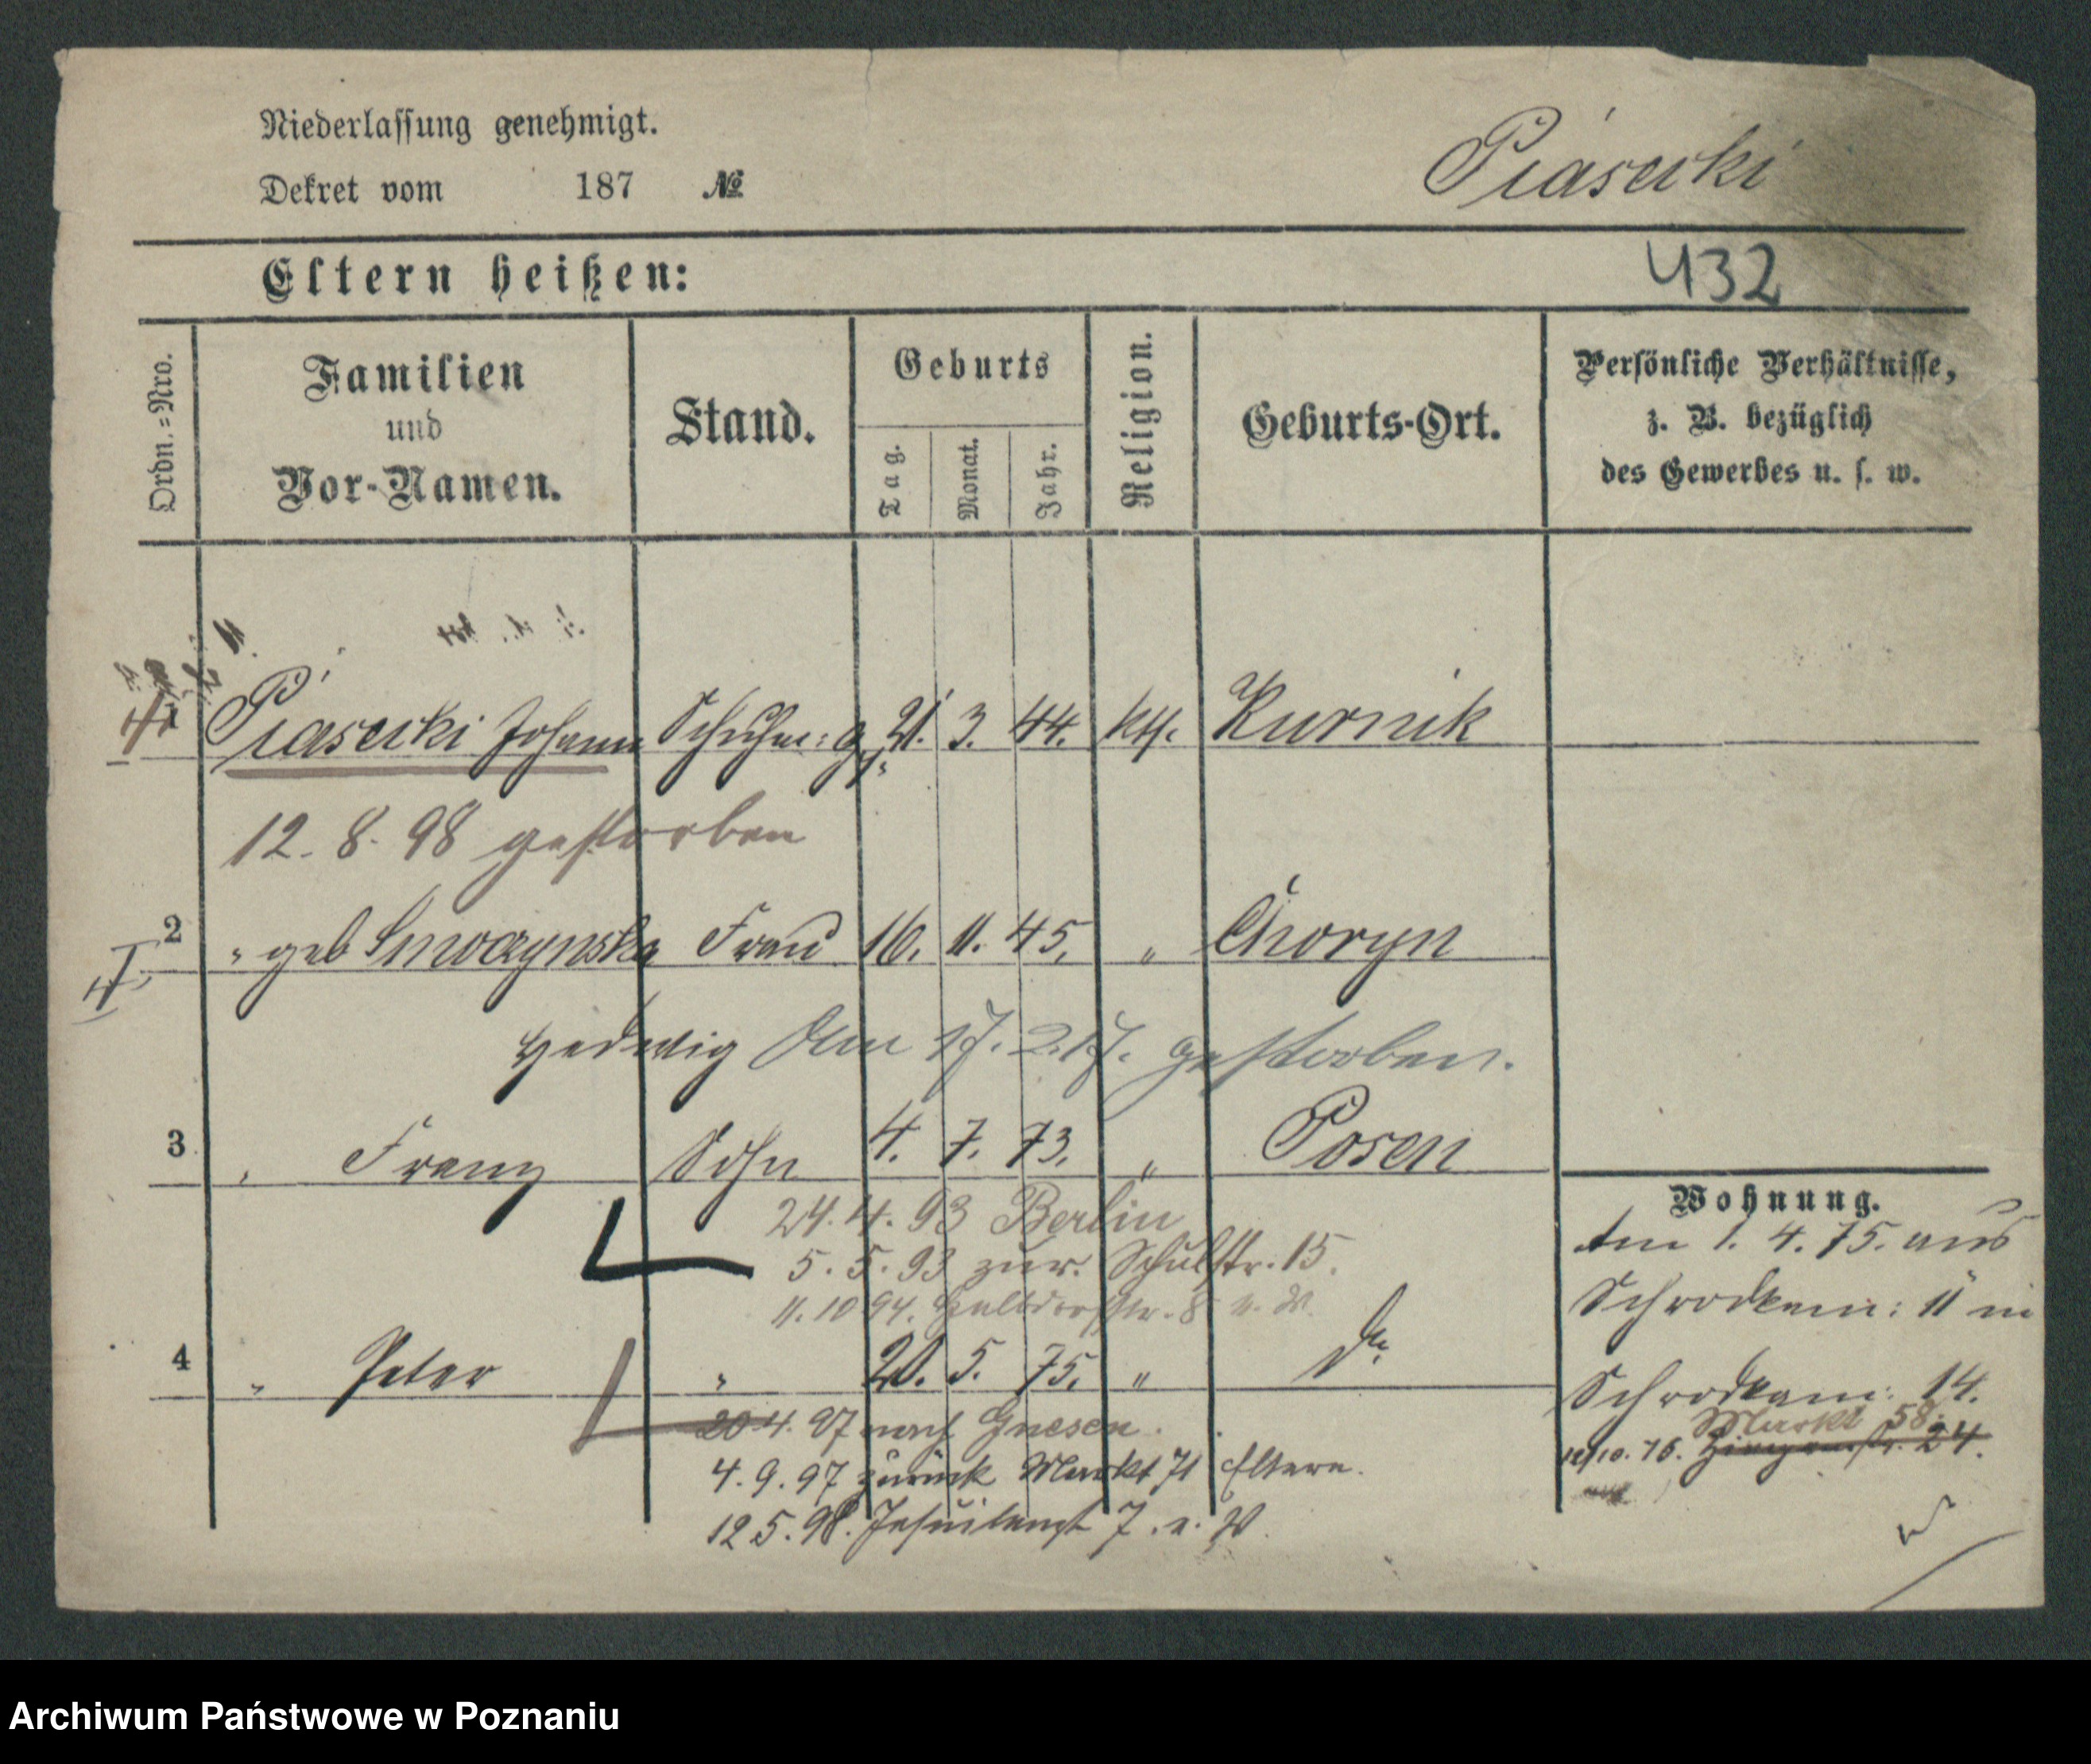 Niederlassung genehmigt.
Dekret vom 187 №
Piasecki
Eltern heißen:
432
Ordn.=Nro.
Familien
und
Vor-Namen.
Stand.
Geburts
Tag.
Monat.
Jahr.
Religion.
Geburts-Ort.
Persönliche Verhältnisse,
z. B. bezüglich
des Gewerbes u. s. w.
1 Piasecki Johann Schuhm: 21. 3. 44. kth. Kurnik
12. 8. 98 gestorben
2 " geb Frau 16. 11. 45. " Choryn
Hedwig Am 17. 2. 17. gestorben.
3 " Franz Sohn 4. 7. 73. " Posen
24. 4. 93 Berlin
5. 5. 93 zur. Schulstr. 15.
11. 10 94. 8
4 " Peter " 20. 5. 75. " do
20 4. 97 nach Gnesen.
4. 9. 97 zurück Markt 71 Eltern.
12 5. 98. Jesuitengst 7.
Wohnung.
Am 1. 4. 75. aus
Schrodkam: 11 in
Schrodkam: 14.
Markt 58.
12/10. 76. 24.
Archiwum Państwowe w Poznaniu